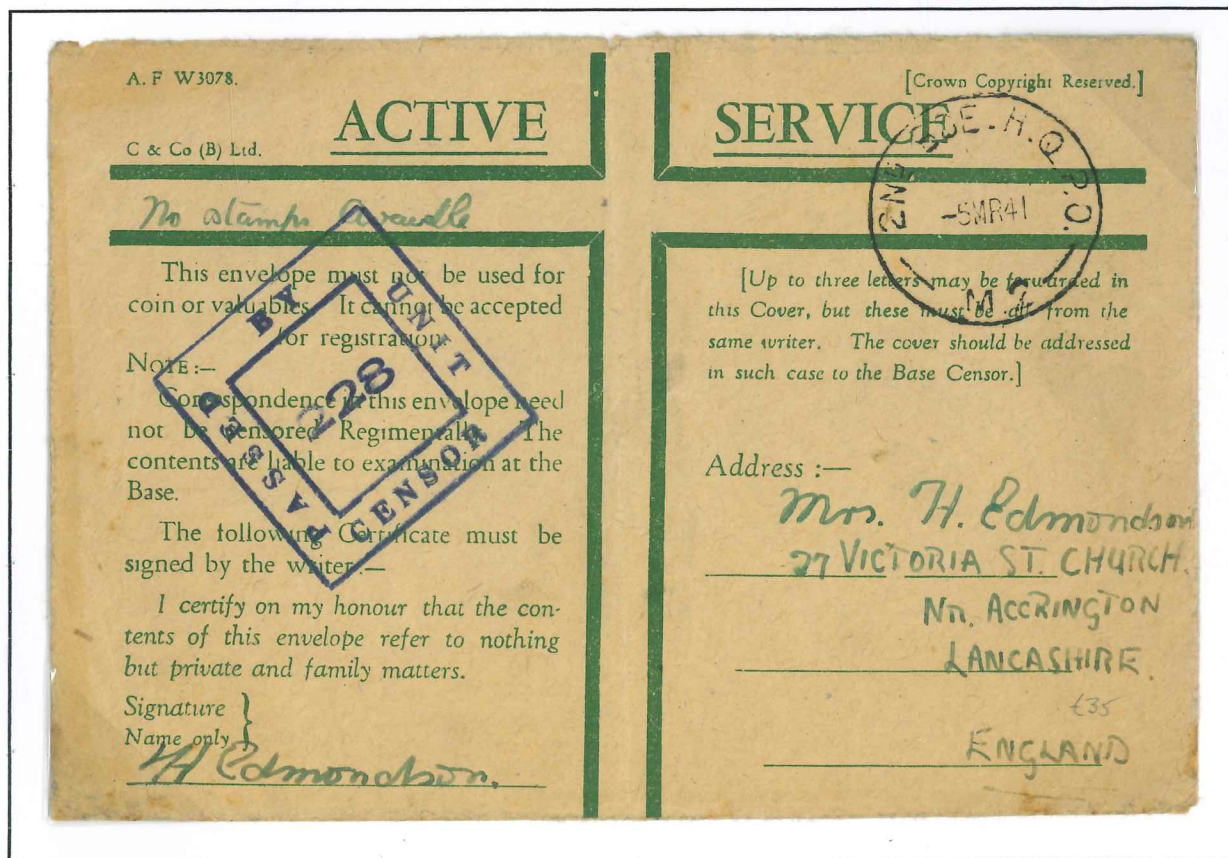 A. F W3078.
[Crown Copyright Reserved.]
ACTIVE SERVICE
C & Co (B) Ltd.
No stamps
This envelope must not be used for
coin or valuables. It cannot be accepted
for registration.
NOTE :—
Correspondence in this envelope need
not be censored Regimentally. The
contents are liable to examination at the
Base.
The following Certificate must be
signed by the writer :—
I certify on my honour that the con-
tents of this envelope refer to nothing
but private and family matters.
Signature }
Name only }
H Edmondson.
PASSED BY UNIT CENSOR
228
H.Q. P.O.
-5MR41
[Up to three letters may be forwarded in
this Cover, but these must be all from the
same writer. The cover should be addressed
in such case to the Base Censor.]
Address :—
Mrs. H. Edmondson
27 VICTORIA ST. CHURCH.
Nr. ACCRINGTON
LANCASHIRE
£35
ENGLAND